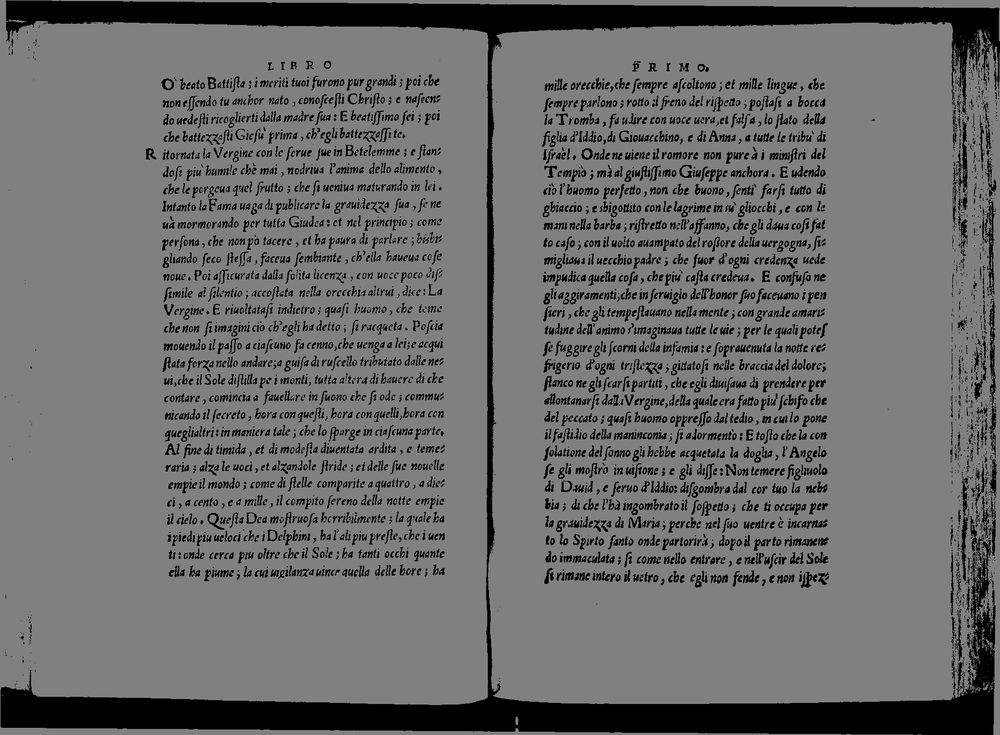 LIBRO
O' beato Battiſta; i meriti tuoi furono pur grandi; poi che
non eſſendo tu anchor nato, conoſceſti Chriſto; e naſcen⸗
do uedeſti ricoglierti dalla madre ſua: E beatiſſimo ſei; poi
che battezzaſti Gieſu' prima, ch'egli battezzeſſi te.
R itornata la Vergine con le ſerue ſue in Betelemme; e ſtan⸗
doſi piu' humile chè mai, nodriua l'anima dello alimento,
che le porgeua quel frutto; che ſi ueniua maturando in lei.
Intanto la Fama uaga di publicare la grauidezza ſua, ſe ne
uà mormorando per tutta Giudea: et nel principio; come
perſona, che non pò tacere, et ha paura di parlare; bisbi⸗
gliando ſeco ſteſſa, faceua ſembiante, ch'ella haueua coſe
noue. Poi aſſicurata dalla ſolita licenza, con uoce poco diſ⸗
ſimile al ſilentio; accoſtata nella orecchia altrui, dice: La
Vergine. E riuoltataſi indietro; quaſi huomo, che teme
che non ſi imagini ciò ch'egli ha detto; ſi racqueta. Poſcia
mouendo il paſſo a ciaſcuno fa cenno, che uenga a lei; e acqui
ſtata forza nello andare; a guiſa di ruſcello tributato dalle ne⸗
ui, che il Sole diſtilla pe i monti, tutta altera di hauere di che
contare, comincia a fauellare in ſuono che ſi ode; commu⸗
nicando il ſecreto, hora con queſti, hora con quelli, hora con
queglialtri: in maniera tale; che lo ſparge in ciaſcuna parte.
Al fine di timida, et di modeſta diuentata ardita, e teme⸗
raria; alza le uoci, et alzandole ſtride; et delle ſue nouelle
empie il mondo; come di ſtelle comparite a quattro, a die⸗
ci, a cento, e a mille, il compito ſereno della notte empie
il cielo. Queſta Dea moſtruoſa horribilmente; la quale ha
i piedi piu ueloci che i Delphini, ha l'ali piu preſte, che i uen
ti: onde cerca piu oltre che il Sole; ha tanti occhi quante
ella ha piume; la cui uigilanza uince quella delle hore; ha
PRIMO.
mille orecchie, che ſempre aſcoltono; et mille lingue, che
ſempre parlono; rotto il freno del riſpetto; poſtaſi a bocca
la Tromba, fa udire con uoce uera, et falſa, lo ſtato della
figlia d'Iddio, di Giouacchino, e di Anna, a tutte le tribu' di
Iſraèl. Onde ne uiene il romore non pure à i miniſtri del
Tempio; mà al giuſtiſſimo Giuſeppe anchora. E udendo
ciò l'huomo perfetto, non che buono, ſenti' farſi tutto di
ghiaccio; e sbigottito con le lagrime in su' gliocchi, e con le
mani nella barba; riſtretto nell'affanno, che gli daua coſi fat
to caſo; con il uolto auampato del roſſore della uergogna, ſi⸗
migliaua il uecchio padre; che fuor d'ogni credenza uede
impudica quella coſa, che piu' caſta credeua. E confuſo ne
gli aggiramenti, che in ſeruigio dell'honor ſuo faceuano i pen
ſieri, che gli tempeſtauano nella mente; con grande amari⸗
tudine dell'animo s'imaginaua tutte le uie; per le quali poteſ
ſe fuggire gli ſcorni della infamia: e ſoprauenuta la notte re⸗
frigerio d'ogni triſtezza; gittatoſi nelle braccia del dolore;
ſtanco ne gli ſcarſi partiti, che egli diuiſaua di prendere per
allontanarſi dalla Vergine, della quale era fatto piu' ſchifo che
del peccato; quaſi huomo oppreſſo dal tedio, in cui lo pone
il faſtidio della maninconia; ſi adormento: E toſto che la con
ſolatione del ſonno gli hebbe acquetata la doglia, l'Angelo
ſe gli moſtrò in uiſione; e gli diſſe: Non temere figliuolo
di Dauid, e ſeruo d'Iddio: diſgombra dal cor tuo la neb⸗
bia; di che l'hà ingombrato il ſoſpetto; che ti occupa per
la grauidezza di Maria; perche nel ſuo uentre è incarna⸗
to lo Spirto ſanto onde partorirà; dopo il parto rimanen⸗
do immaculata; ſi come nello entrare, e nell'uſcir del Sole
ſi rimane intero il uetro, che egli non fende, e non iſpez⸗